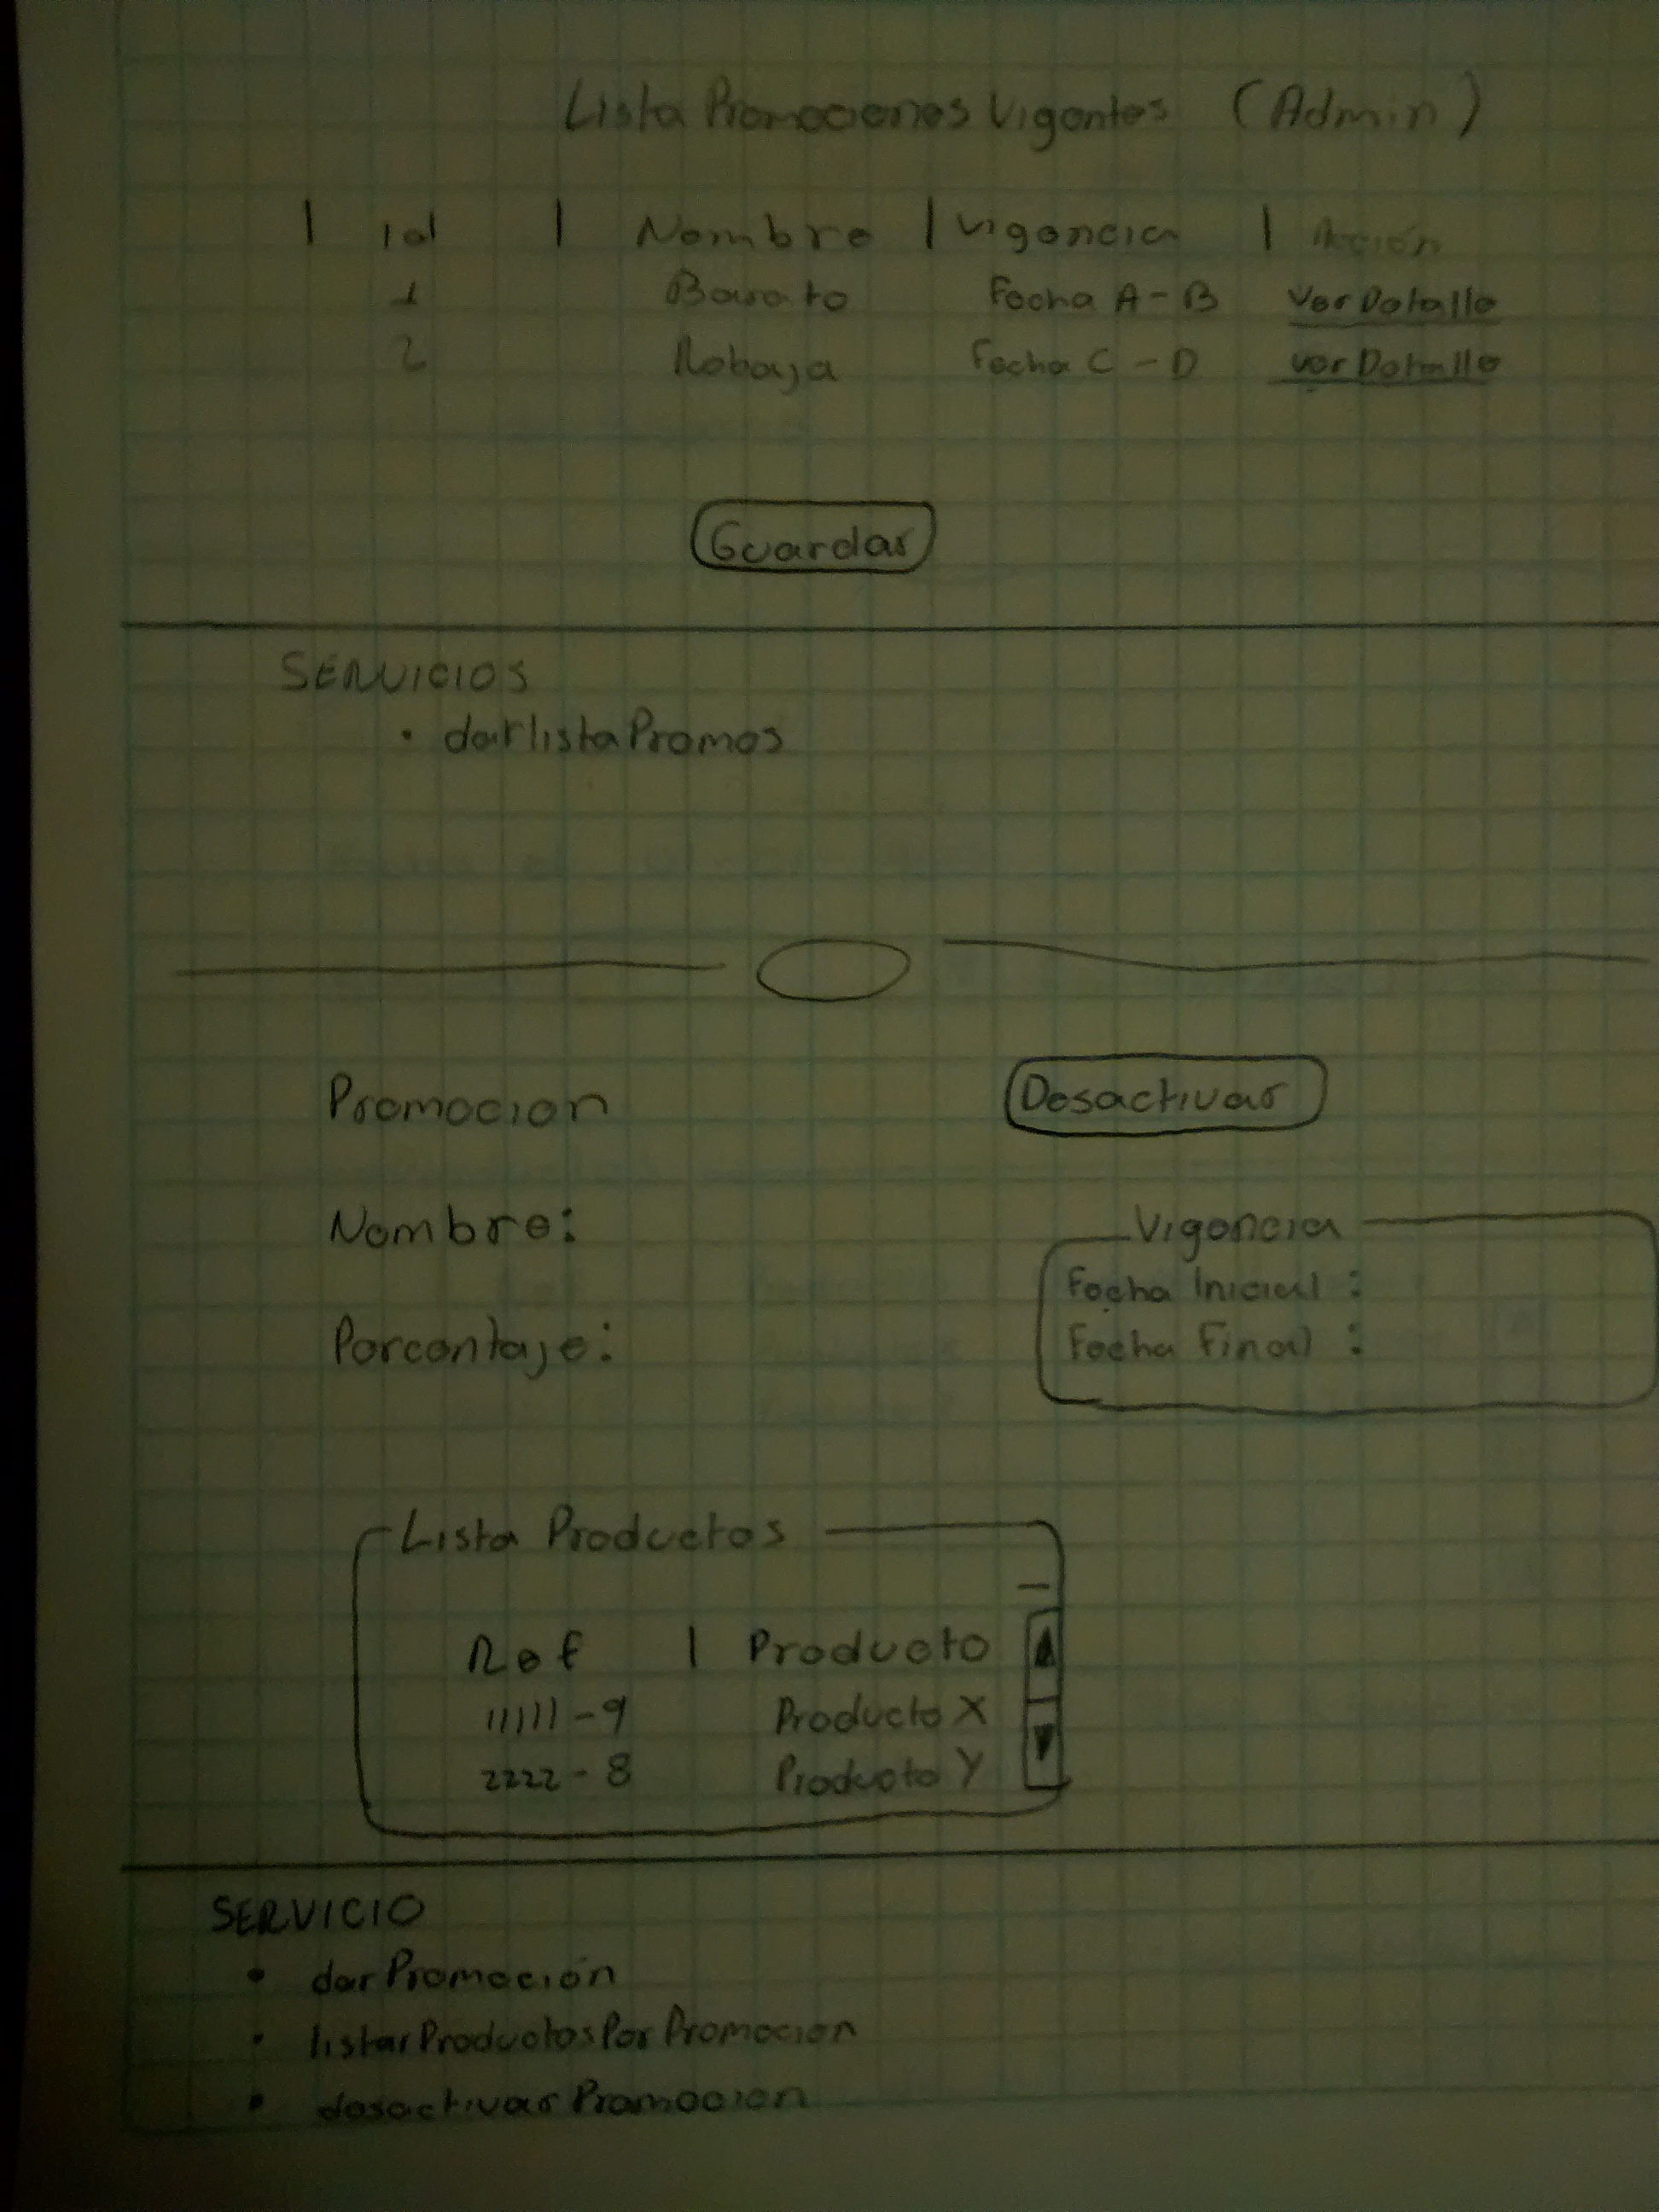 Lista Promociones Vigentes (Admin)
| id | Nombre | Vigencia | Acción
1 Barato Fecha A - B Ver Detalle
2 Rebaja Fecha C - D ver Detalle
Guardar
SERVICIOS
• darlistaPromos
Promocion Desactivar
Nombre: Vigencia
Fecha Inicial :
Porcentaje: Fecha Final :
Lista Productos
Ref | Producto
11111-9 Producto X
2222-8 Producto Y
SERVICIO
• darPromoción
• listarProductosPorPromocion
• desactivarPromocion